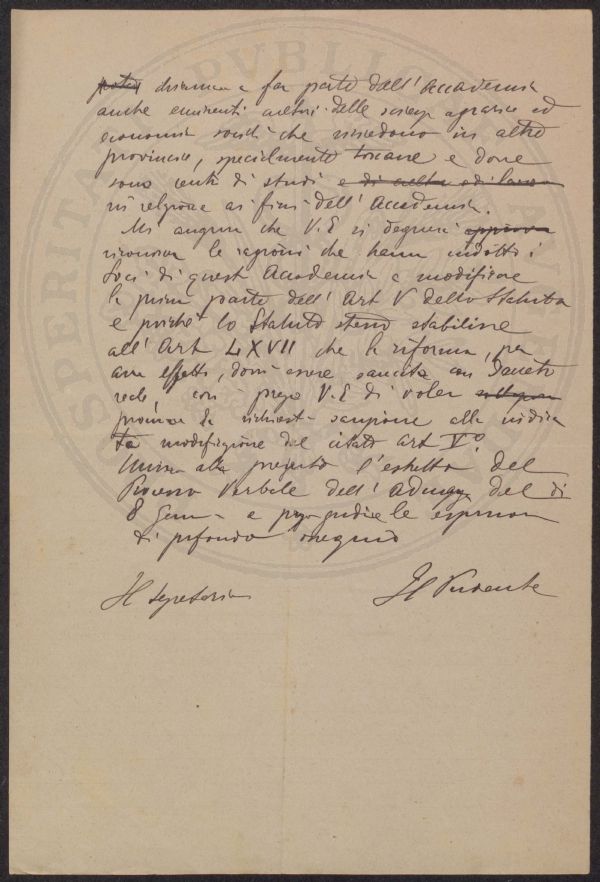 chiamare a far parte dell'Accademia
anche eminenti cultori delle scienze agrarie ed
economia sociale che risiedono in altre
provincie, specialmente toscane e dove
sono centri di studi e di cultura ed
in relazione ai fini dell'Accademia.
Mi auguro che V.E. si degnerà
riconoscere le ragioni che hanno indotto i
Soci di questa Accademia a modificare
la prima parte dell'Art V dello Statuto
e poichè lo Statuto stesso stabilisce
all'Art LXVII che la riforma, per
avere effetto, dovrà essere sancita con Decreto
reale, così prego V.E. di voler
promuovere la richiesta sanzione alla indica
ta modificazione del citato Art V.o
Unisco alla presente l'estratto del
Processo Verbale dell'Adunanza del di
8 Genn e prego gradire le espressioni
di profondo ossequio
Il Segretario
Il Presidente